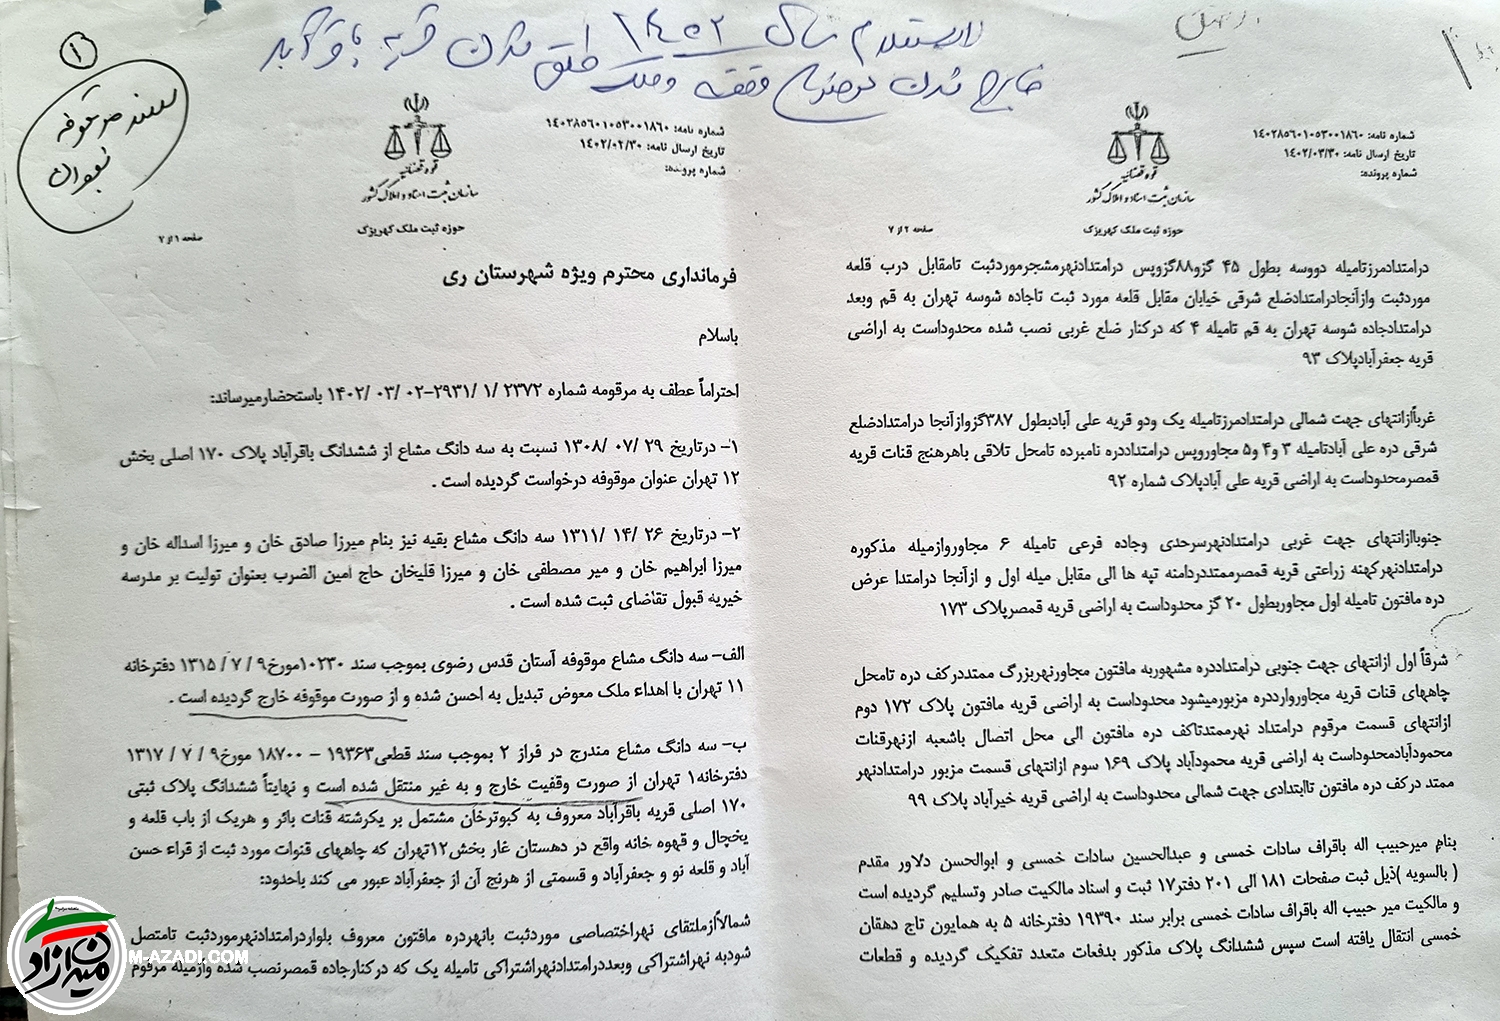 لاستعلام سال ۱۴۰۲ طلق شدن قریه باقرآباد
خارج شدن
وقفه و ملک
۱
سند موقوفه
شماره نامه: ۱۴۰۲۸۵۶۰۱۰۵۳۰۰۱۸۶۰
تاریخ ارسال نامه: ۱۴۰۲/۰۲/۳۰
شماره پرونده:
قوه قضائیه
سازمان ثبت اسناد و املاک کشور
حوزه ثبت ملک کهریزک
صفحه ۱ از ۷
فرمانداری محترم ویژه شهرستان ری
باسلام
احتراماً عطف به مرقومه شماره ۲۳۷۲ /۱ /۲۹۳۱–۰۲ /۰۳ /۱۴۰۲ باستحضارمیرساند:
۱- درتاریخ ۲۹ /۰۷ /۱۳۰۸ نسبت به سه دانگ مشاع از ششدانگ باقرآباد پلاک ۱۷۰ اصلی بخش
۱۲ تهران عنوان موقوفه درخواست گردیده است .
۲- درتاریخ ۲۶ /۱۴ /۱۳۱۱ سه دانگ مشاع بقیه نیز بنام میرزا صادق خان و میرزا اسداله خان و
میرزا ابراهیم خان و میر مصطفی خان و میرزا قلیخان حاج امین الضرب بعنوان تولیت بر مدرسه
خیریه قبول تقاضای ثبت شده است .
الف- سه دانگ مشاع موقوفه آستان قدس رضوی بموجب سند ۱۰۲۳۰مورخ۹ / ۷ / ۱۳۱۵ دفترخانه
۱۱ تهران با اهداء ملک معوض تبدیل به احسن شده و از صورت موقوفه خارج گردیده است .
ب- سه دانگ مشاع مندرج در فراز ۲ بموجب سند قطعی۱۹۳۶۳ – ۱۸۷۰۰ مورخ۹ / ۷ / ۱۳۱۷
دفترخانه۱ تهران از صورت وقفیت خارج و به غیر منتقل شده است و نهایتاً ششدانگ پلاک ثبتی
۱۷۰ اصلی قریه باقرآباد معروف به کبوترخان مشتمل بر یکرشته قنات بائر و هریک از باب قلعه و
یخچال و قهوه خانه واقع در دهستان غار بخش۱۲تهران که چاههای قنوات مورد ثبت از قراء حسن
آباد و قلعه نو و جعفرآباد و قسمتی از هرنج آن از جعفرآباد عبور می کند باحدود:
شمالاًازملتقای نهراختصاصی موردثبت بانهردره مافتون معروف بلواردرامتدادنهرموردثبت تامتصل
شودبه نهراشتراکی وبعددرامتدادنهراشتراکی تامیله یک که درکنارجاده قمصرنصب شده وازمیله مرقوم
شماره نامه: ۱۴۰۲۸۵۶۰۱۰۵۳۰۰۱۸۶۰
تاریخ ارسال نامه: ۱۴۰۲/۰۳/۳۰
شماره پرونده:
قوه قضائیه
سازمان ثبت اسناد و املاک کشور
حوزه ثبت ملک کهریزک
صفحه ۲ از ۷
درامتدادمرزتامیله دووسه بطول ۴۵ گزو۸۸گزوپس درامتدادنهرمشجرموردثبت تامقابل درب قلعه
موردثبت وازآنجادرامتدادضلع شرقی خیابان مقابل قلعه مورد ثبت تاجاده شوسه تهران به قم وبعد
درامتدادجاده شوسه تهران به قم تامیله ۴ که درکنار ضلع غربی نصب شده محدوداست به اراضی
قریه جعفرآبادپلاک ۹۳
غرباًازانتهای جهت شمالی درامتدادمرزتامیله یک ودو قریه علی آبادبطول ۳۸۷گزوازآنجا درامتدادضلع
شرقی دره علی آبادتامیله ۳ و۴ و۵ مجاوروپس درامتداددره نامبرده تامحل تلاقی باهرهنج قنات قریه
قمصرمحدوداست به اراضی قریه علی آبادپلاک شماره ۹۲
جنوباًازانتهای جهت غربی درامتدادنهرسرحدی وجاده فرعی تامیله ۶ مجاوروازمیله مذکوره
درامتدادنهرکهنه زراعتی قریه قمصرممتددردامنه تپه ها الی مقابل میله اول و ازآنجا درامتدا عرض
دره مافتون تامیله اول مجاوربطول ۲۰ گز محدوداست به اراضی قریه قمصرپلاک ۱۷۳
شرقاً اول ازانتهای جهت جنوبی درامتداددره مشهوربه مافتون مجاورنهربزرگ ممتددرکف دره تامحل
چاههای قنات قریه مجاوروارددره مزبورمیشود محدوداست به اراضی قریه مافتون پلاک ۱۷۲ دوم
ازانتهای قسمت مرقوم درامتداد نهرممتدتاکف دره مافتون الی محل اتصال باشعبه ازنهرقنات
محمودآبادمحدوداست به اراضی قریه محمودآباد پلاک ۱۶۹ سوم ازانتهای قسمت مزبور درامتدادنهر
ممتد درکف دره مافتون تاابتدادی جهت شمالی محدوداست به اراضی قریه خیرآباد پلاک ۹۹
بنام میرحبیب اله باقراف سادات خمسی و عبدالحسین سادات خمسی و ابوالحسن دلاور مقدم
( بالسویه )ذیل ثبت صفحات ۱۸۱ الی ۲۰۱ دفتر۱۷ ثبت و اسناد مالکیت صادر وتسلیم گردیده است
و مالکیت میر حبیب اله باقراف سادات خمسی برابر سند ۱۹۳۹۰ دفترخانه ۵ به همایون تاج دهقان
خمسی انتقال یافته است سپس ششدانگ پلاک مذکور بدفعات متعدد تفکیک گردیده و قطعات
میرآزادی
M-AZADI.COM